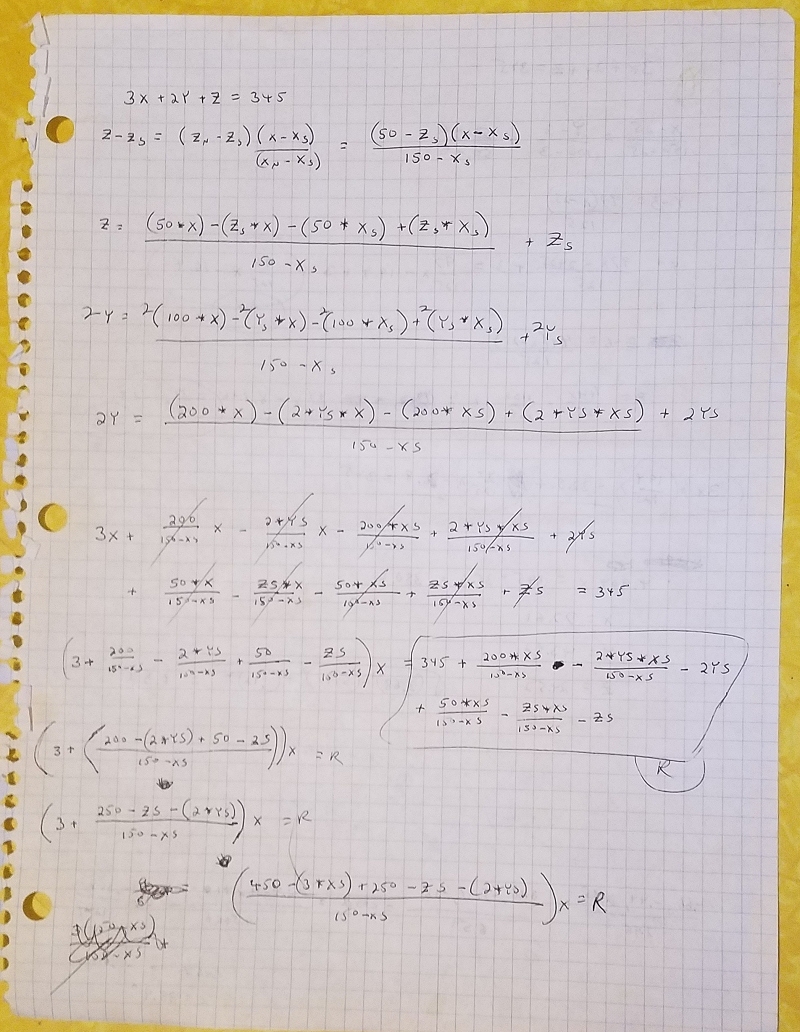 3x + 2Y + Z = 345
Z - Zs = (ZN - Zs) (x - xs) / (xN - xs) = (50 - Zs)(x - xs) / 150 - xs
Z = (50 * x) - (Zs * x) - (50 * xs) + (Zs * xs) / 150 - xs + Zs
2 - Y = 2(100 * x) - 2(Ys * x) - 2(100 * xs) + 2(Ys * xs) / 150 - xs + 2Ys
2Y = (200 * x) - (2 * Ys * x) - (200 * xs) + (2 * Ys * xs) / 150 - xs + 2Ys
3x + 200 / 150 - xs x - 2 * Ys / 150 - xs x - 200 * xs / 150 - xs + 2 * Ys * xs / 150 - xs + 2Ys
+ 50 * x / 150 - xs - Zs * x / 150 - xs - 50 * xs / 150 - xs + Zs * xs / 150 - xs + Zs = 345
(3 + 200 / 150 - xs - 2 * Ys / 150 - xs + 50 / 150 - xs - Zs / 150 - xs) x = 345 + 200 * xs / 150 - xs - 2 * Ys * xs / 150 - xs - 2Ys
+ 50 * xs / 150 - xs - Zs * xs / 150 - xs - Zs
R
(3 + (200 - (2 * Ys) + 50 - Zs / 150 - xs)) x = R
(3 + 250 - Zs - (2 * Ys) / 150 - xs) x = R
(450 - (3 * xs) + 250 - Zs - (2 * Ys) / 150 - xs) x = R